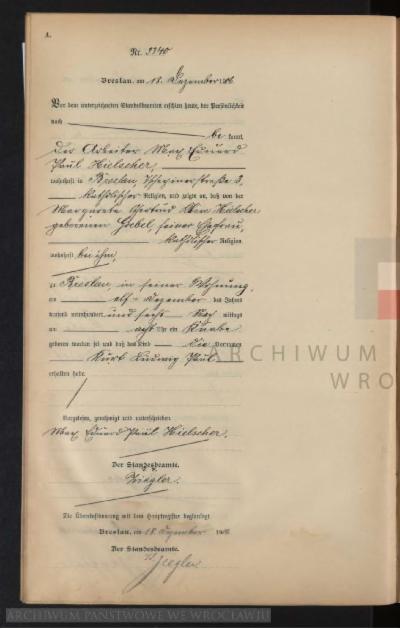 A.
Nr. 3740
Breslau, am 18. Dezember 1906
Vor dem unterzeichneten Standesbeamten erschien heute, der Persönlichkeit
nach
be kannt,
der Arbeiter Max Eduard
Paul Hielscher,
wohnhaft in Breslau, 3,
katholischer Religion, und zeigte an, daß von der
Margarete Gertrud Hielscher
geborenen Goebel, seiner Ehefrau,
katholischer Religion
wohnhaft bei ihm,
zu Breslau, in seiner Wohnung,
am elf Dezember des Jahres
tausend neunhundert und sechs mittags
um acht Uhr ein Knabe
geboren worden sei und daß das Kind die Vornamen
Kurt Ludwig Paul
erhalten habe.
Vorgelesen, genehmigt und unterschrieben
Max Eduard Paul Hielscher.
Der Standesbeamte.
Ziegler.
Die Übereinstimmung mit dem Hauptregister beglaubigt
Breslau, am 18. Dezember 1906
Der Standesbeamte.
Ziegler
ARCHIWUM
WRO
ARCHIWUM PAŃSTWOWE WE WROCŁAWIU